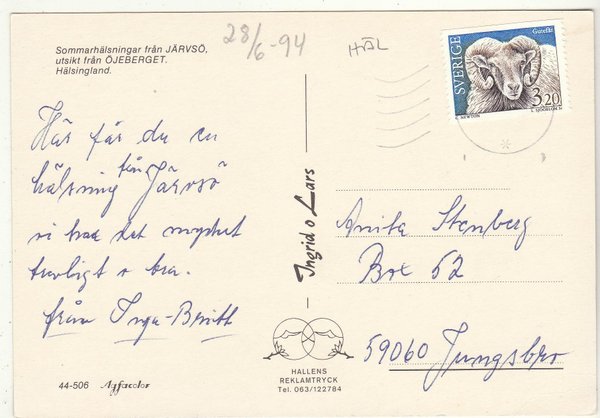 Sommarhälsningar från JÄRVSÖ,
utsikt från ÖJEBERGET.
Hälsingland.
28/6-94
HÄL
SVERIGE
Gutefår
3.20
Här får du en
hälsning från Järvsö
vi har det mycket
trevligt o bra.
från Inga-Britt
44-506 Agfacolor
Ingrid o Lars
HALLENS
REKLAMTRYCK
Tel. 063/122784
Anita Stenberg
Box 62
59060 Jungsbro